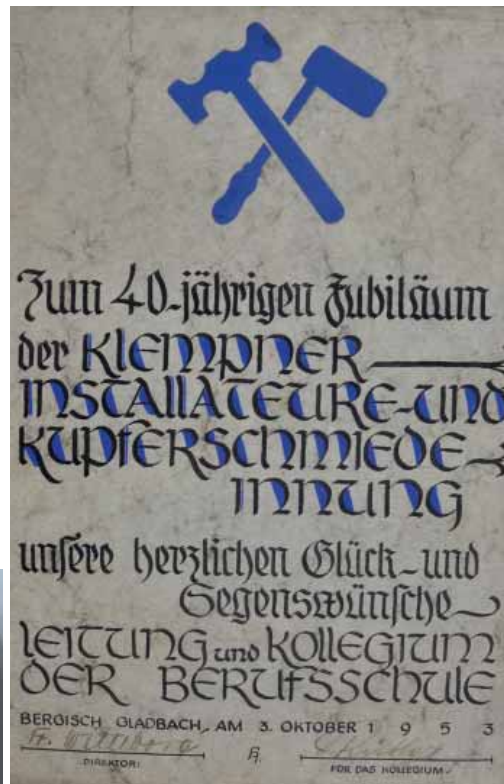 Zum 40-jährigen Jubiläum
der KLEMPNER
INSTALLATEURE-UND
KUPFERSCHMIEDE
INNUNG
unsere herzlichen Glück-und
Segenswünsche
LEITUNG und KOLLEGIUM
DER BERUFSSCHULE
BERGISCH GLADBACH, AM 3. OKTOBER 1953
DIREKTOR: FÜR DAS KOLLEGIUM